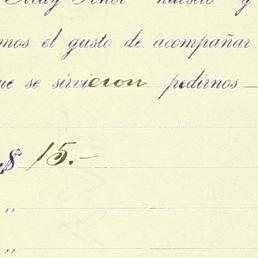 Muy Señor nuestro y
mos el gusto de acompañar
ue se sirvieron pedirnos
$ 15.-
"
"